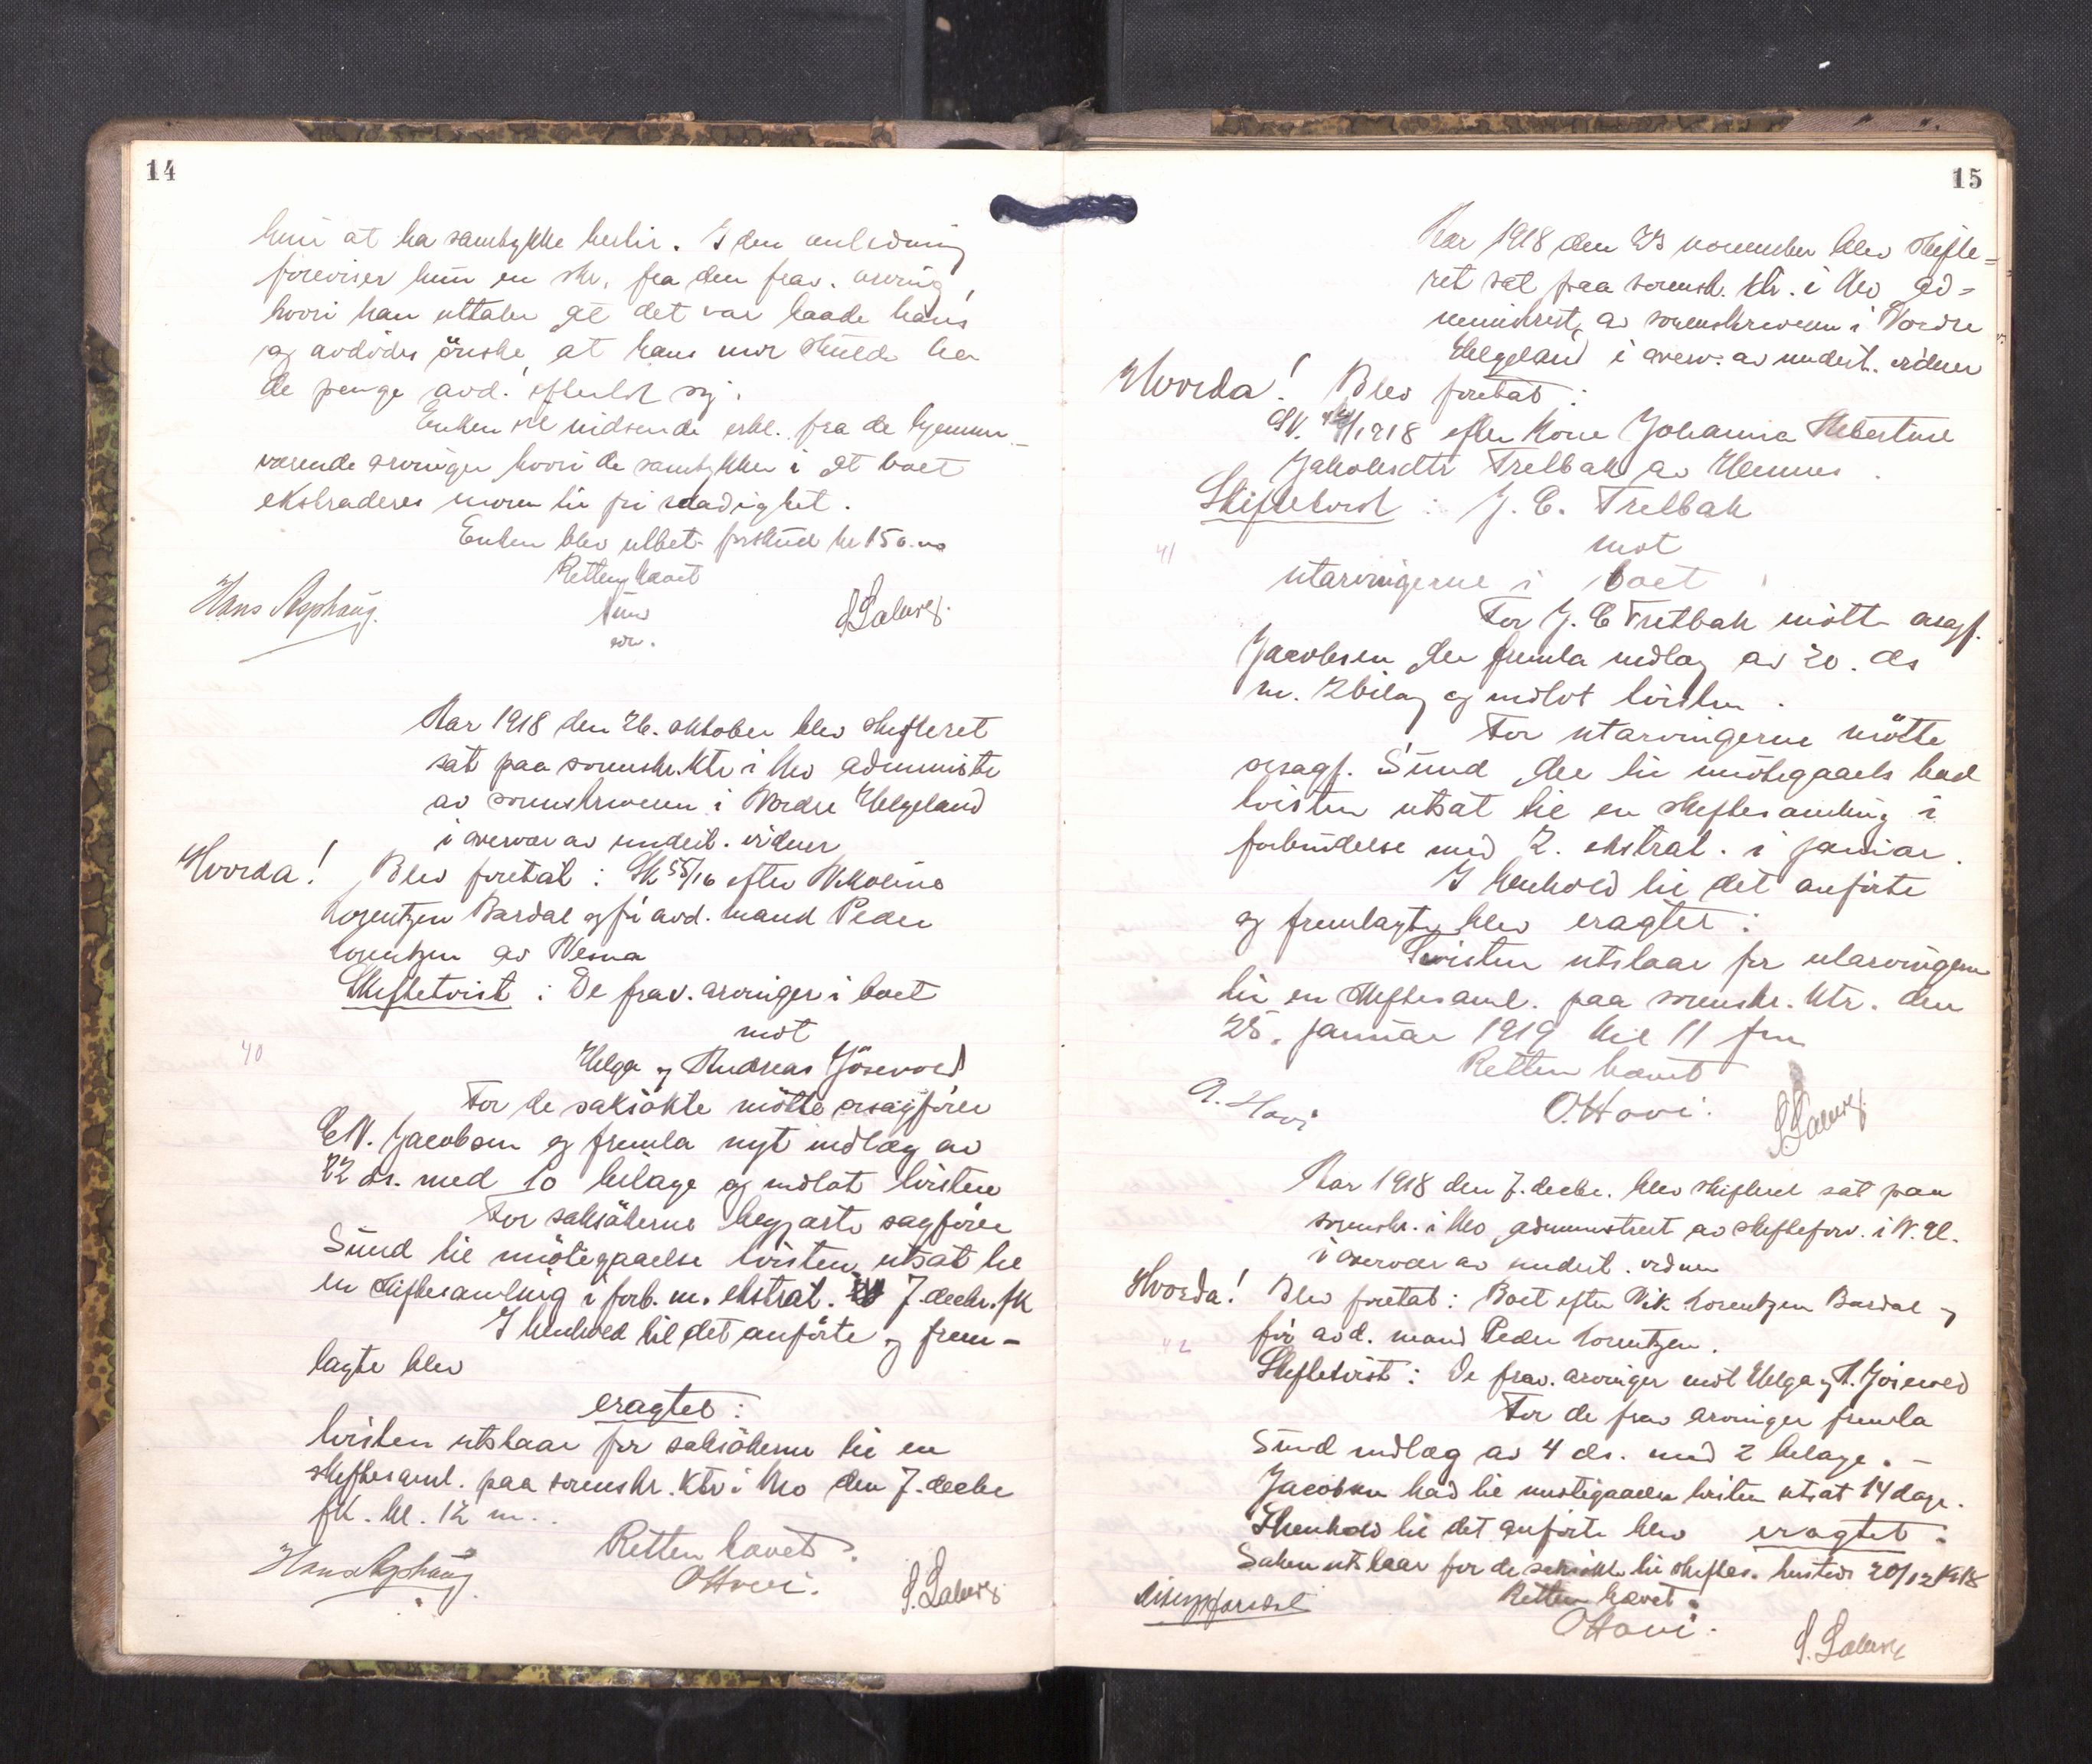 14
hun at ha samtykke hertil. I den anledning
foreviser hun en skr. fra den frav. arving,
hvori han uttaler at det var baade hans
og avdødes ønske at hans mor skulde ha
de penge avd. efterlot sig.
Enken vil indsende erkl. fra de hjemme-
værende arvinger hvori de samtykker i at boet
ekstraderes moren til fri raadighet.
Enken blev utbet. forskud kr 150.00
Retten hævet
Hans Asphaug.
Aar 1918 den 26. oktober blev skifteret
sat paa sorenskr.ktr i Mo administr
av sorenskriveren i Nordre Helgeland
i overvær av undert. vidner
Hvorda! Blev foretat: Sk 55/16 efter Nikoline
Lorentzen Bardal og før avd. mand Peder
Lorentzen av Nesna
Skiftetvist: De frav. arvinger i boet
mot
40
Helga og Andreas Jösevold
For de saksøkte møtte osagfører
E N. Jacobsen og fremla nyt indlæg av
22 ds. med 10 bilage og indlot tvisten
For saksøkerne begjærte sagfører
Sund til imøtegaaelse tvisten utsat til
en skiftesamling i forb. m. ekstrat. 7. decbr. fk
I henhold til det anførte og frem-
lagte blev
eragtet:
Tvisten utstaar for saksøkerne til en
skiftesaml. paa sorenskr. ktr i Mo den 7. decbr
fk. kl. 12 m.
Retten hævet.
Hans Asphaug
O Hovi.
15
Aar 1918 den 23 november blev skifte-
ret sat paa sorensk. ktr. i Mo ad-
ministrert av sorenskriveren i Nordre
Helgeland i overv. av undert. vidner
Hvorda! Blev foretat:
1918 efter kone Johanna Hebertine
Jakobsdtr Tretbak av Hemnes.
Skiftetvist: J. C. Tretbak
mot
41
utarvingerne i boet
For J. C Tretbak møtte osagf.
Jacobsen der fremla indlæg av 20. ds
m. 2 bilag og indlot tvisten.
For utarvingerne møtte
osagf. Sund der til imøtegaaels bad
tvisten utsat til en skiftesamling i
forbindelse med 2. ekstrat. i januar.
I henhold til det anførte
og fremlagte blev eragtet:
Tvisten utstaar for utarvingerne
til en skiftesaml. paa sorenskr. ktr. den
25. januar 1919 kl 11 fm
Retten hævet
A. Hovi
O Hovi.
Aar 1918 den 7. decbr. blev skifteret sat paa
sorenskr. i Mo, administrert av skifteforv. i N. Hl.
i overvær av undert. vidner
Hvorda! Blev foretat: Boet efter Nik. Lorentzen Bardal og
42
før avd. mand Peder Lorentzen.
Skiftetvist: De frav. arvinger mot Helga og A. Jösevold
For de frav arvinger fremla
Sund indlæg av 4 ds. med 2 bilage. -
Jacobsen bad til imøtegaaelse tvisten utsat 14 dage.
I henhold til det anførte blev eragtet:
Saken utstaar for de saksøkte til skiftes. hersteds 20/12 1918
Retten hævet.
O Hovi.